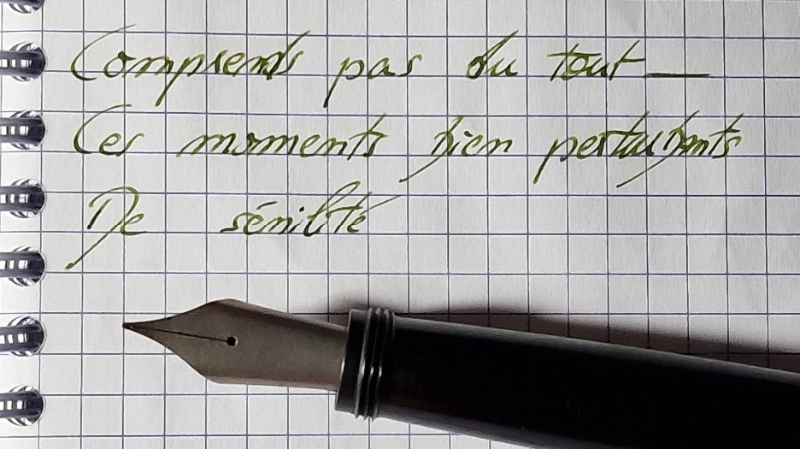 Comprends pas du tout —
Ces moments bien perturbants
De sénilité